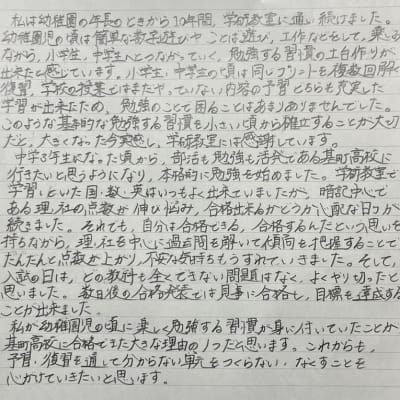 私は幼稚園の年長のときから10年間、学研教室に通い続けました。
幼稚園児の頃は簡単な数字遊びや ことば遊び、工作などをして、楽しみ
ながら、小学生、中学生へとつながっていく、勉強する習慣の土台作りが
出来たと感じています。小学生、中学生の頃は同じプリントを複数回解く
復習、学校の授業ではまだやっていない内容の予習どちらも充実した
学習が出来たため、勉強のことで困ることはあまりありませんでした。
このような基本的な勉強する習慣を小さい頃から確立することが大切
だと、大きくなった今実感し、学研教室には感謝しています。
中学3年生になった頃から、部活も勉強も活発である基町高校に
行きたいと思うようになり、本格的に勉強を始めました。学研教室で
学習していた国・数・英はいつもよく出来ていましたが、暗記中心で
ある理・社の点数が伸び悩み、合格出来るかどうか心配な日々が
続きました。それでも、自分は合格できる、合格するんだという思いを
持ちながら、理・社を中心に過去問を解いて傾向を把握することで
だんだんと点数が上がり、不安な気持ちもうすれていきました。そして、
入試の日は、どの教科も全くできない問題はなく、よくやり切ったと
思いました。数日後の合格発表では見事に合格し、目標を達成する
ことが出来ました。
私が幼稚園児の頃に楽しく勉強する習慣が身に付いていたことが
基町高校に合格できた大きな理由の1つだと思います。これからも、
予習・復習を通して分からない単元をつくらない・なくすことを
心がけていきたいと思います。